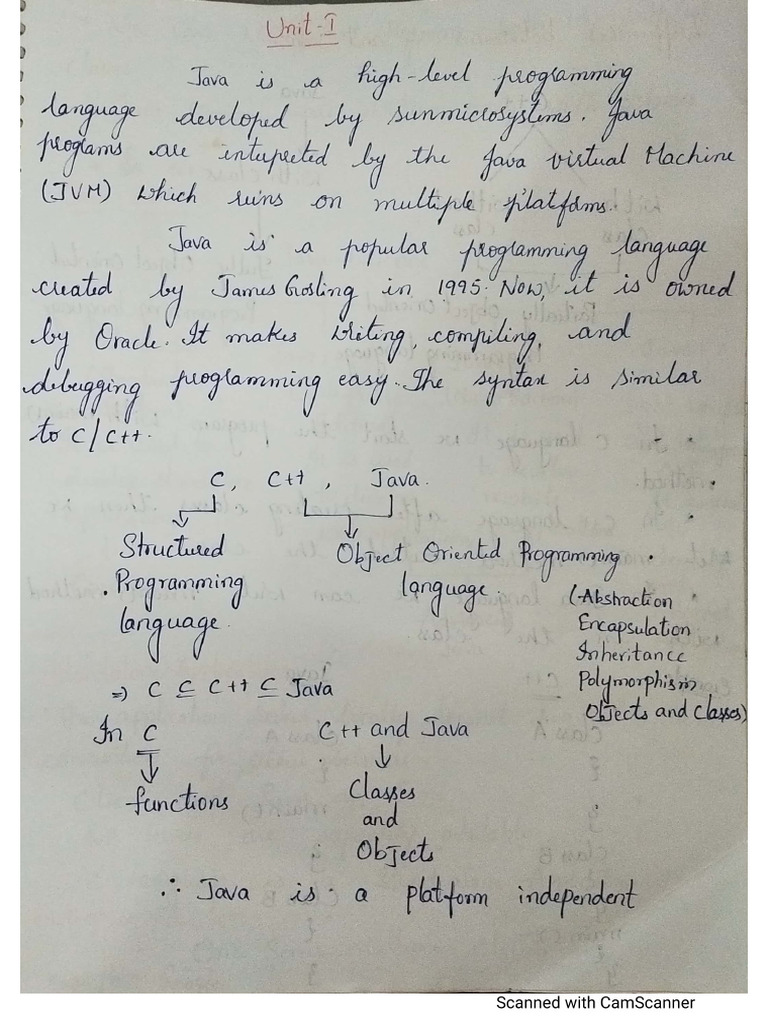 Unit-I
Java is a high-level programming
language developed by sunmicrosystems. Java
programs are interpreted by the Java virtual Machine
(JVM) which runs on multiple platforms.
Java is a popular programming language
created by James Gosling in 1995. Now, it is owned
by Oracle. It makes writing, compiling, and
debugging programming easy. The syntax is similar
to C/C++.
C, C++, Java.
Structured
Programming
language.
Object Oriented Programming
language.
(Abstraction
Encapsulation
Inheritance
Polymorphism
Objects and Classes)
⇒ C ⊆ C++ ⊆ Java
In C
functions
C++ and Java
Classes
and
Objects
∴ Java is a platform independent
Scanned with CamScanner